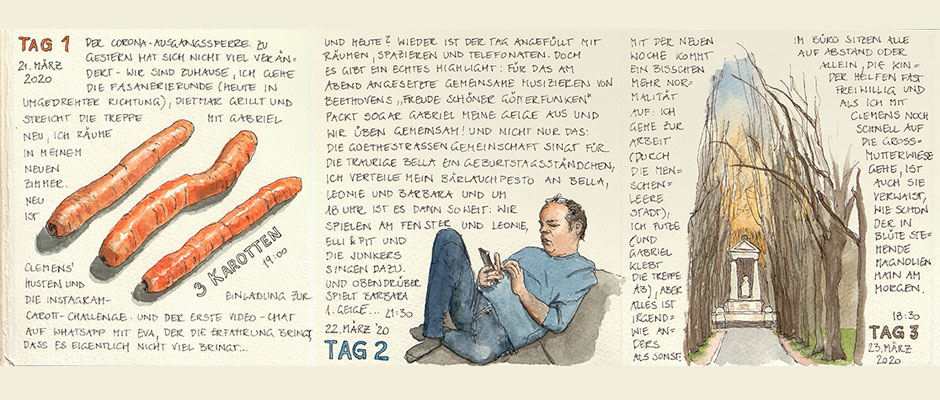 TAG 1
21. MÄRZ
2020
DER CORONA-AUSGANGSSPERRE. ZU
GESTERN HAT SICH NICHT VIEL VERÄN-
DERT - WIR SIND ZUHAUSE, ICH GEHE
DIE FASANERIERUNDE (HEUTE IN
UMGEDREHTER RICHTUNG), DIETMAR GRILLT UND
STREICHT DIE TREPPE MIT GABRIEL
NEU, ICH RÄUME
IN MEINEM
NEUEN
ZIMMER.
NEU
IST
CLEMENS'
HUSTEN UND
DIE INSTAGRAM-
CAROT-CHALLENGE. UND DER ERSTE VIDEO-CHAT
AUF WHATSAPP MIT EVA, DER DIE ERFAHRUNG BRINGT,
DASS ES EIGENTLICH NICHT VIEL BRINGT...
3 KAROTTEN
19:00
EINLADUNG ZUR
UND HEUTE? WIEDER IST DER TAG ANGEFÜLLT MIT
RÄUMEN, SPAZIEREN UND TELEFONATEN. DOCH
ES GIBT EIN ECHTES HIGHLIGHT: FÜR DAS AM
ABEND ANGESETZTE GEMEINSAHE MUSIZIEREN VON
BEETHOVENS „FREUDE SCHÖNER GÖTTERFUNKEN"
PACKT SOGAR GABRIEL MEINE GEIGE AUS UND
WIR ÜBEN GEMEINSAM! UND NICHT NUR DAS:
DIE GOETHESTRASSEN GEMEINSCHAFT SINGT FÜR
DIE TRAURIGE BELLA EIN GEBURTSTAGSSTÄNDCHEN,
ICH VERTEILE MEIN BÄRLAUCHPESTO AN BELLA,
LEONIE UND BARBARA UND UM
18 UHR IST ES DANN SOWEIT: WIR
SPIELEN AM FENSTER UND LEONIE,
ELLI & PIT UND
DIE JUNKERS
SINGEN DAZU.
UND OBENDRÜBER
SPIELT BARBARA
1. GEIGE... 21:30
22. MÄRZ '20
TAG 2
MIT DER NEUEN
WOCHE KOMMT
EIN BISSCHEN
MEHR NOR-
MALITÄT
AUF: ICH
GEHE ZUR
ARBEIT
(DURCH
DIE MEN-
SCHEN-
LEERE
STADT),
ICH PUTZE
(UND
GABRIEL
KLEBT
DIE TREPPE
AB), ABER
ALLES IST
IRGEND-
WIE AN-
DERS
ALS SONST.
IM BÜRO SITZEN ALLE
AUF ABSTAND ODER
ALLEIN, DIE KIN-
DER HELFEN FAST
FREIWILLIG UND
ALS ICH MIT
CLEMENS NOCH
SCHNELL AUF
DIE GROSS-
MUTTERWIESE
GEHE, IST
AUCH SIE
VERWAIST,
WIE SCHON
DER IN
BLÜTE STE-
HENDE
MAGNOLIEN
HAIN AM
MORGEN.
18:30
TAG 3
23. MÄRZ
2020